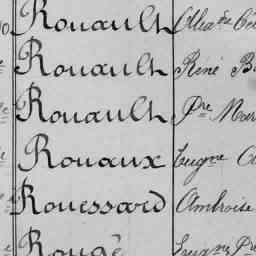 Rouault Alex.dre
Rouault René
Rouault P.re Mar
Rouaux Eugne
Rouessard Ambroise
Rougé Eugne P.re